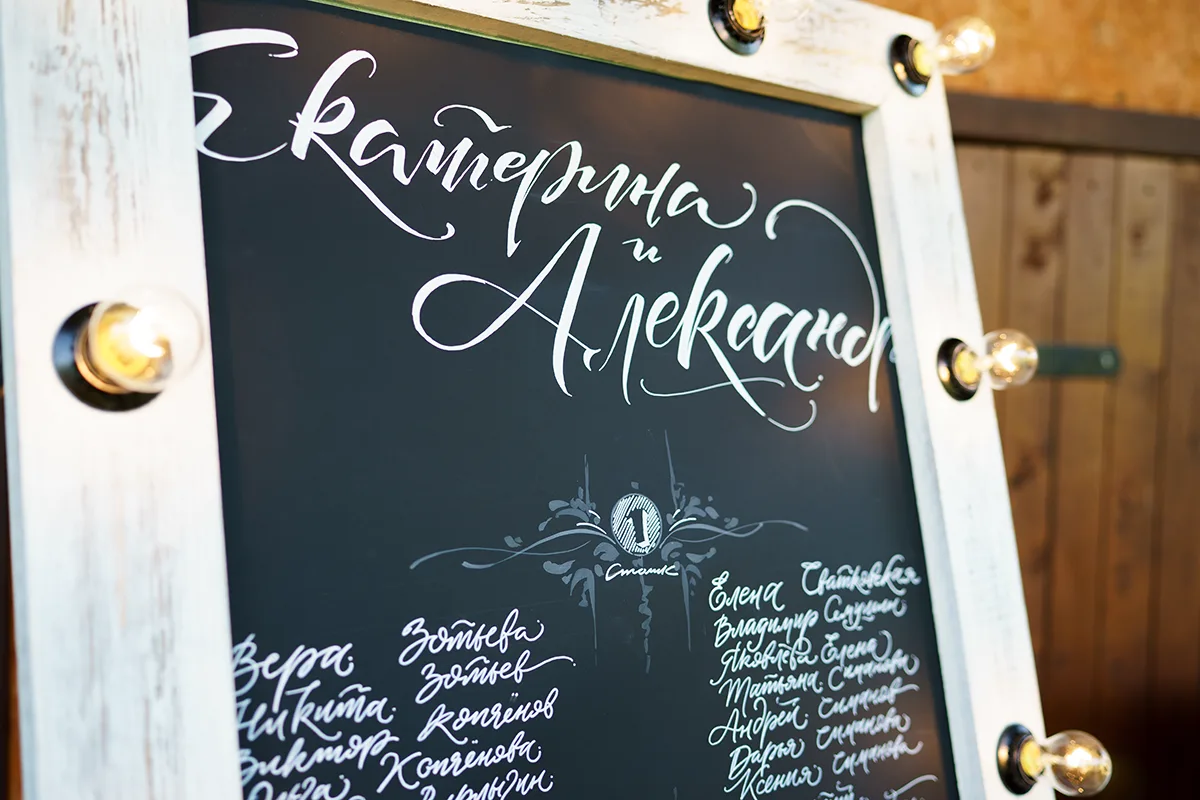 Екатерина
и
Александр
1
Столик
Вера Зотьева
Никита Зотьев
Виктор Копчёнов
Ольга Копчёнова
Елена Сватковская
Владимир
Яковлева Елена
Татьяна Симанова
Андрей Симанов
Дарья Симанова
Ксения Симанова